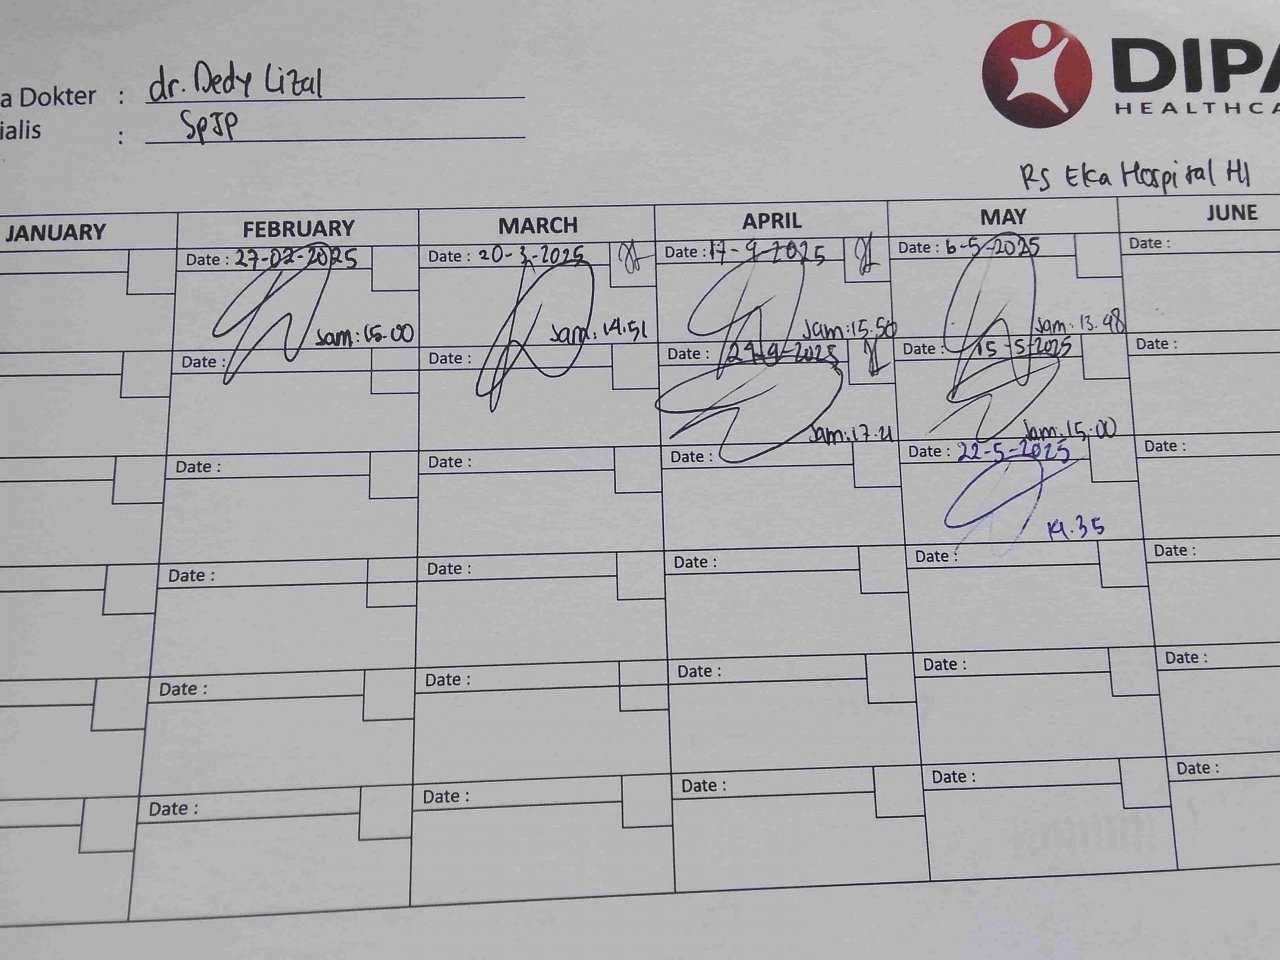 a Dokter : dr. Dedy Lizal
ialis : SpJP
DIPA
HEALTHCA
RS Eka Hospital
JANUARY FEBRUARY MARCH APRIL MAY JUNE
Date : 27-02-2025 Date : 20-3-2025 Date : 17-4-2025 Date : 6-5-2025 Date :
Jam: 15.00 Jam: 14.51 Jam: 15.50 Jam: 13.48
Date : Date : Date : 24-4-2025 Date : 15-5-2025 Date :
Jam: 17.21 Jam: 15.00
Date : Date : Date : Date : 22-5-2025 Date :
14.35
Date : Date : Date : Date : Date :
Date : Date : Date : Date : Date :
Date : Date : Date : Date : Date :